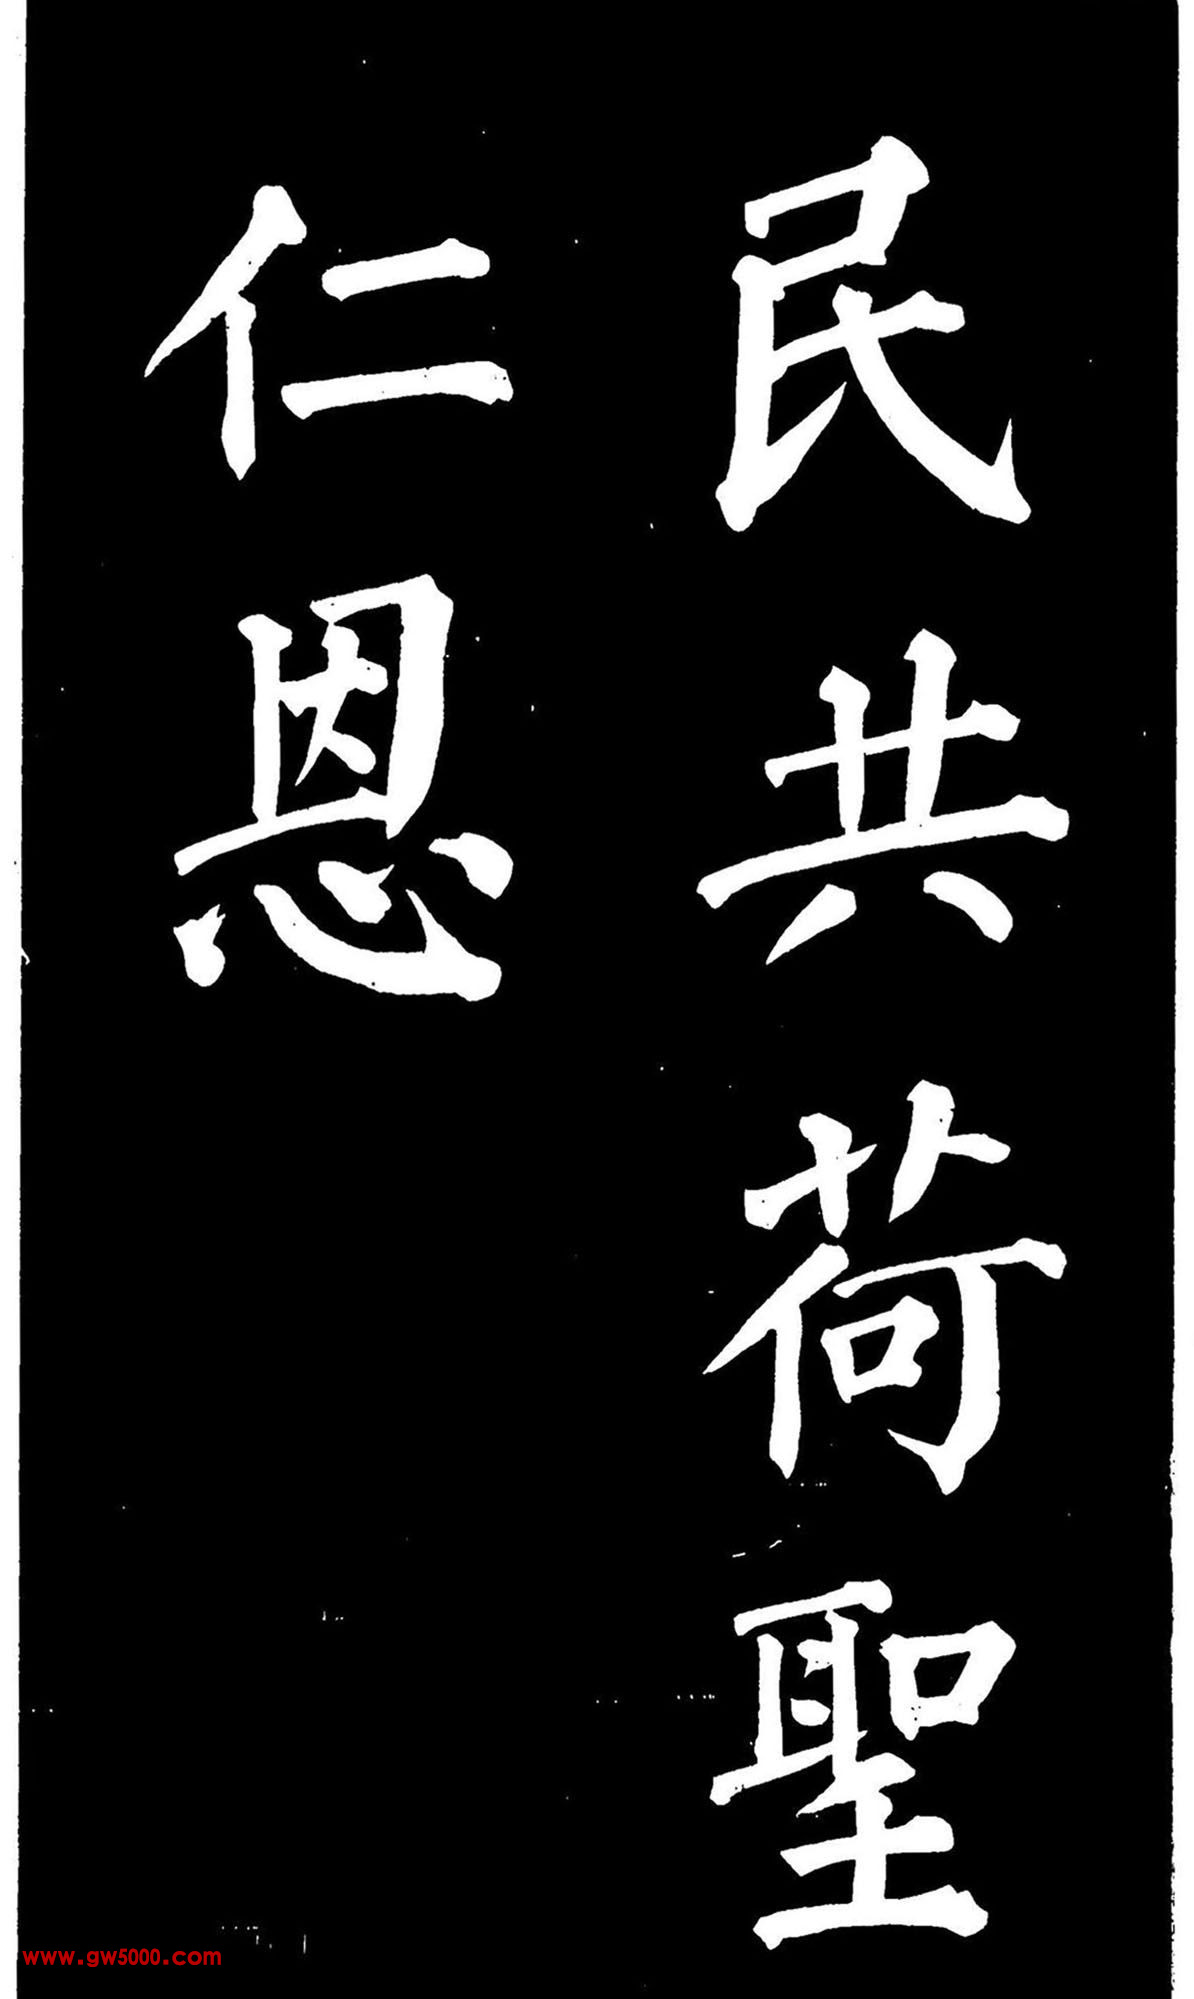 民共荷聖
仁恩
www.gw5000.com